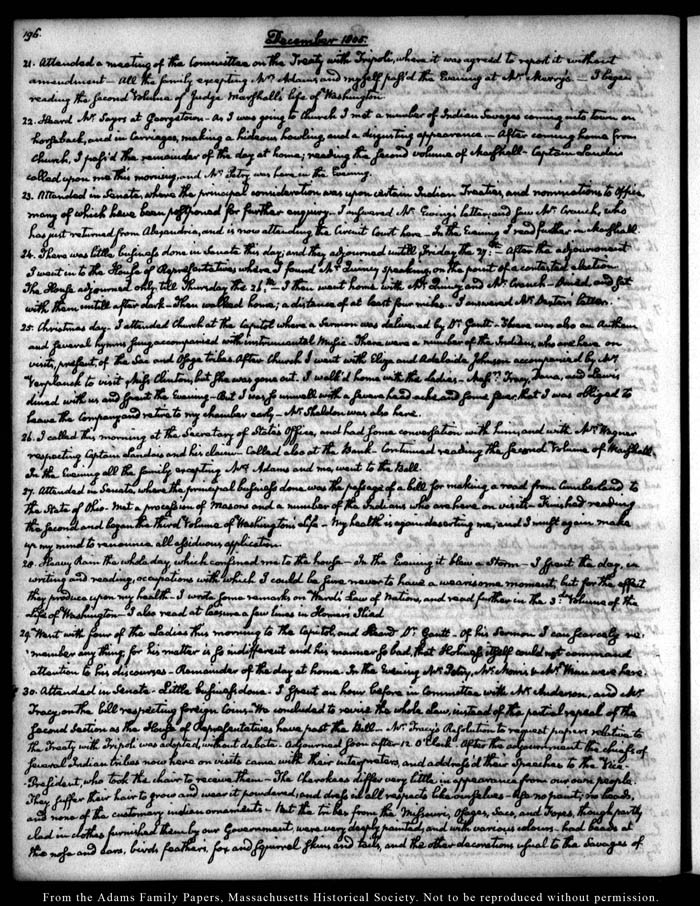 196.
December 1805.
21. Attended a meeting of the Committee on the Treaty with Tripoli, where it was agreed to report it without
amendment — All the family excepting Mrs. Adams, and myself pass'd the Evening at Mr. Merry's — I began
reading the second Volume of Judge Marshall's life of Washington.
22. Heard Mr. Sayrs at Georgetown — As I was going to Church I met a number of Indian Savages coming into town on
horseback, and in Carriages, making a hideous howling, and a disgusting appearance. — After coming home from
Church, I pass'd the remainder of the day at home; reading the second volume of Marshall — Captain Landais
called upon me this morning, and Mr. Petry was here in the Evening.
23. Attended in Senate, where the principal consideration was upon certain Indian Treaties, and nominations to Office,
many of which have been postponed for further enquiry. I answered Mr. Ewing's letter, and saw Mr. Cranch, who
has just returned from Alexandria, and is now attending the Circuit Court here — In the Evening I read further in Marshall.
24. There was little business done in Senate this day; and they adjourned untill Friday the 27th. — After the adjournment
I went in to the House of Representatives where I found Mr. Quincy speaking, on the point of a contested election.
The House adjourned only till Thursday the 26th. — I then went home with Mr. Quincy and Mr. Cranch — Dined, and sat
with them untill after dark — Then walked home; a distance of at least four miles — I answered Mr. Dexter's letter.
25. Christmas day — I attended Church at the Capitol where a Sermon was delivered by Dr. Gantt — There was also an Anthem
and several hymns sung accompanied with instrumental Music — There were a number of the Indians, who are here on
visits, present, of the Sac and Osage tribes. After Church I went with Eliza and Adelaide Johnson accompanied by Mr.
Verplanck to visit Miss Clinton, but she was gone out. I walk'd home with the Ladies — Messrs. Tracy, Dana, and Lewis
dined with us and spent the Evening — But I was so unwell with a severe head ache and some fever, that I was obliged to
leave the Company and retire to my chamber early — Mr. Sheldon was also here.
26. I called this morning at the Secretary of State's Office, and had some conversation with him, and with Mr. Wagner
respecting Captain Landais and his claim. Called also at the Bank — Continued reading the second Volume of Marshall.
In the Evening all the family excepting Mrs. Adams and me, went to the Ball.
27. Attended in Senate, where the principal business done was the passage of a bill for making a road from Cumberland to
the State of Ohio — Met a procession of Masons and a number of the Indians who are here on visits — Finished reading
the second and began the third Volume of Washington's Life — My health is again deserting me; and I must again make
up my mind to renounce all assiduous application.
28. Heavy Rain the whole day, which confined me to the house — In the Evening it blew a Storm — I spent the day, in
writing and reading, occupations with which I could be sure never to have a wearisome moment, but for the effect
they produce upon my health — I wrote some remarks on Ward's Law of Nations, and read further in the 3d. Volume of the
Life of Washington — I also read at leisure a few lines in Homer's Iliad
29. Went with four of the Ladies this morning to the Capitol, and heard Dr. Gantt — Of his Sermon I can scarcely re-
member any thing, for his matter is so indifferent and his manner so bad, that Holiness itself could not command
attention to his discourses — Remainder of the day at home. In the Evening Mr. Petry, Mr. Morris & Mr. Winn were here.
30. Attended in Senate — Little business done. I spent an hour before in Committee with Mr. Anderson, and Mr.
Tracy, on the bill respecting foreign Coins — We concluded to revise the whole Law, instead of the partial repeal of the
second section as the House of Representatives have past the Bill — Mr. Tracy's Resolution to request papers relative to
the Treaty with Tripoli was adopted, without debate. Adjourned soon after 12 O'Clock. After the adjournment the chiefs of
several Indian tribes now here on visits came with their interpreters, and address'd their Speeches to the Vice-
President, who took the chair to receive them — The Cherokees differ very little in appearance from our own people.
They suffer their hair to grow and wear it powdered; and dress in all respects like ourselves — Use no paint, no beads,
and none of the customary indian ornaments — Not the tribes from the Missouri, Osages, Sacs, and Foxes, though partly
clad in clothes furnished them by our Government, were very deeply painted, and with various colours — had beads at
the nose and ears, birds feathers, fox and squirrel skins and tails, and the other decorations usual to the Savages of
From the Adams Family Papers, Massachusetts Historical Society. Not to be reproduced without permission.